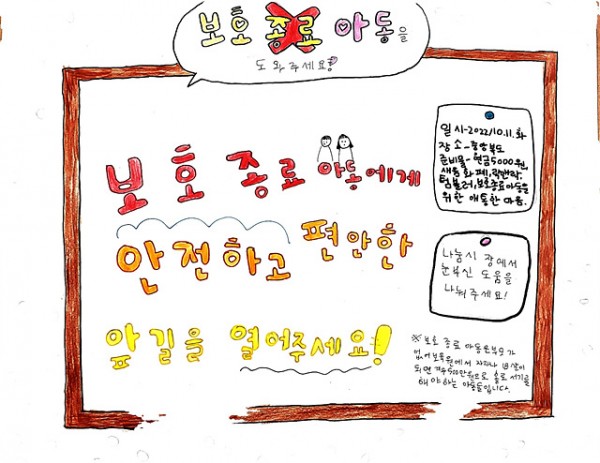 보호 종료 아동을
도와주세요!
보호 종료 아동에게
안전하고 편안한
앞길을 열어주세요!
일시-2022/10.11.화
장소-중앙복도
준비물-현금5000원,
새송화폐,락앤락,
텀블러,보호종료아동을
위한 애틋한 마음.
나눔시 광에서
눈부신 도움을
나눠주세요!
※ 보호 종료 아동은 부모가
없어 보육원에서 자라나 18살이
되면 겨우 500만원으로 홀로 서기를
해야하는 아동들입니다.